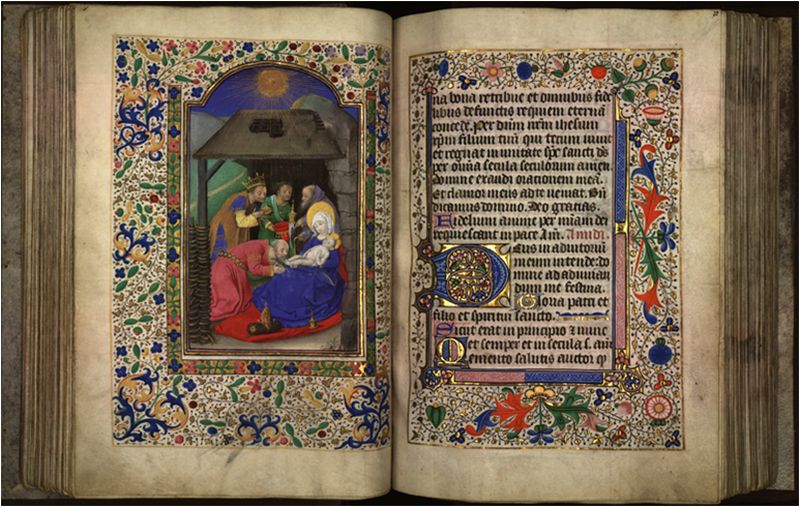 na bona retribue et omnibus fide
libus defunctis requiem eternā
concede. Per dnm nrm ihesum
xpm filium tuū qui tecum viuit
et regnat in unitate spc sancti ds
per omnia secula seculorum amen.
Domine exaudi orationem meā.
Et clamor meus ad te veniat. Bn
dicamus domino. Deo gratias.
Fidelium anime per miam dei
requiescant in pace Am. Ad vi
Deus in adiutoriū
meum intende: do
mine ad adiuuan
dum me festina.
Gloria patri et
filio et spiritui sancto.
Sicut erat in principio & nunc
et semper et in secula s. am
Memento salutis auctor q